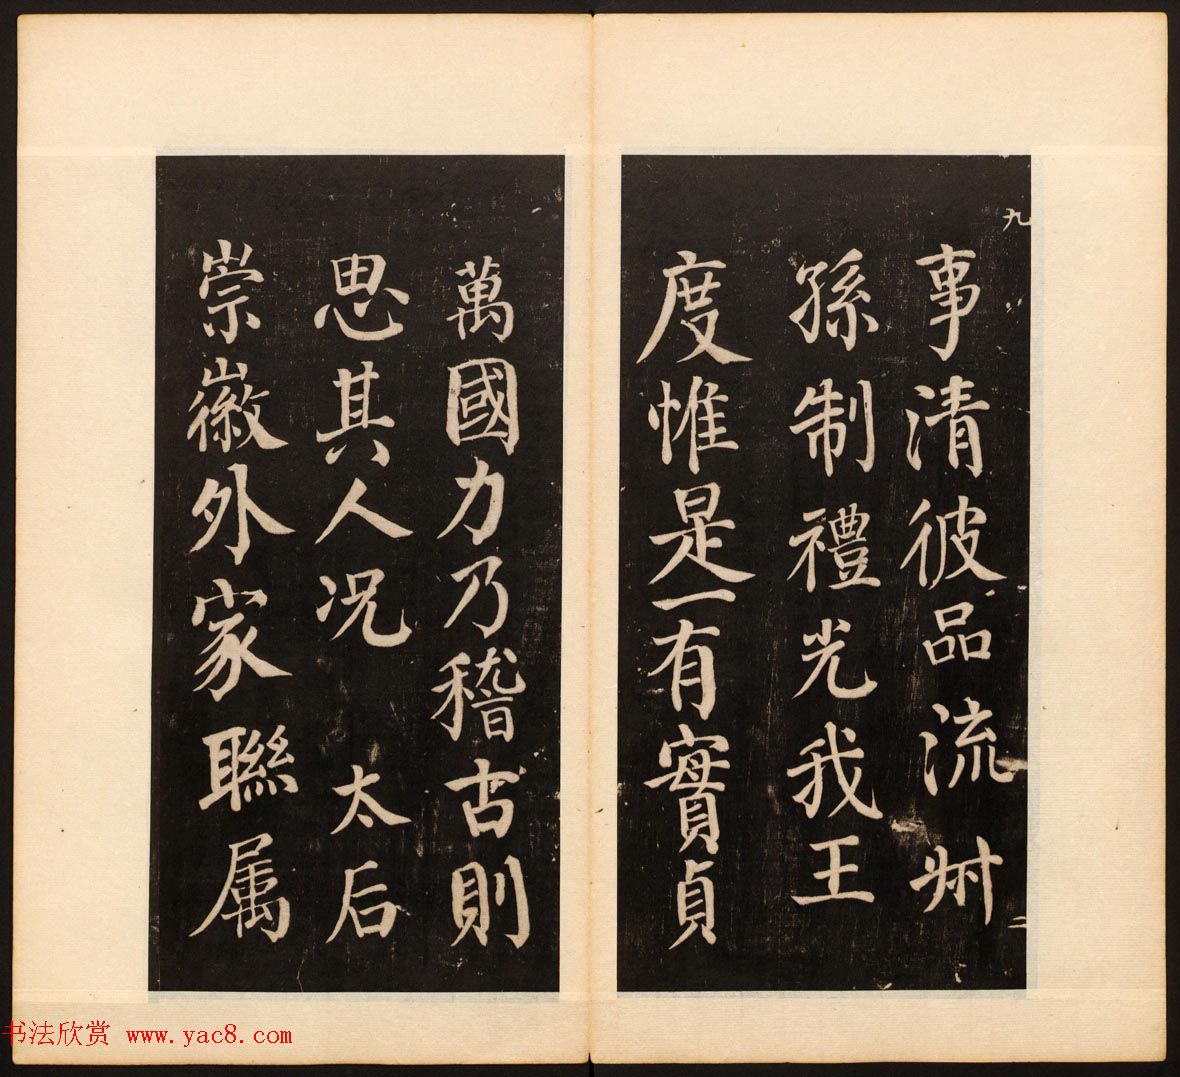 九
事清彼品流叔
二
孫制禮光我王
度惟是一有實貞
萬國力乃稽古則
思其人况 太后
崇徽外家聯属
书法欣赏 www.yac8.com